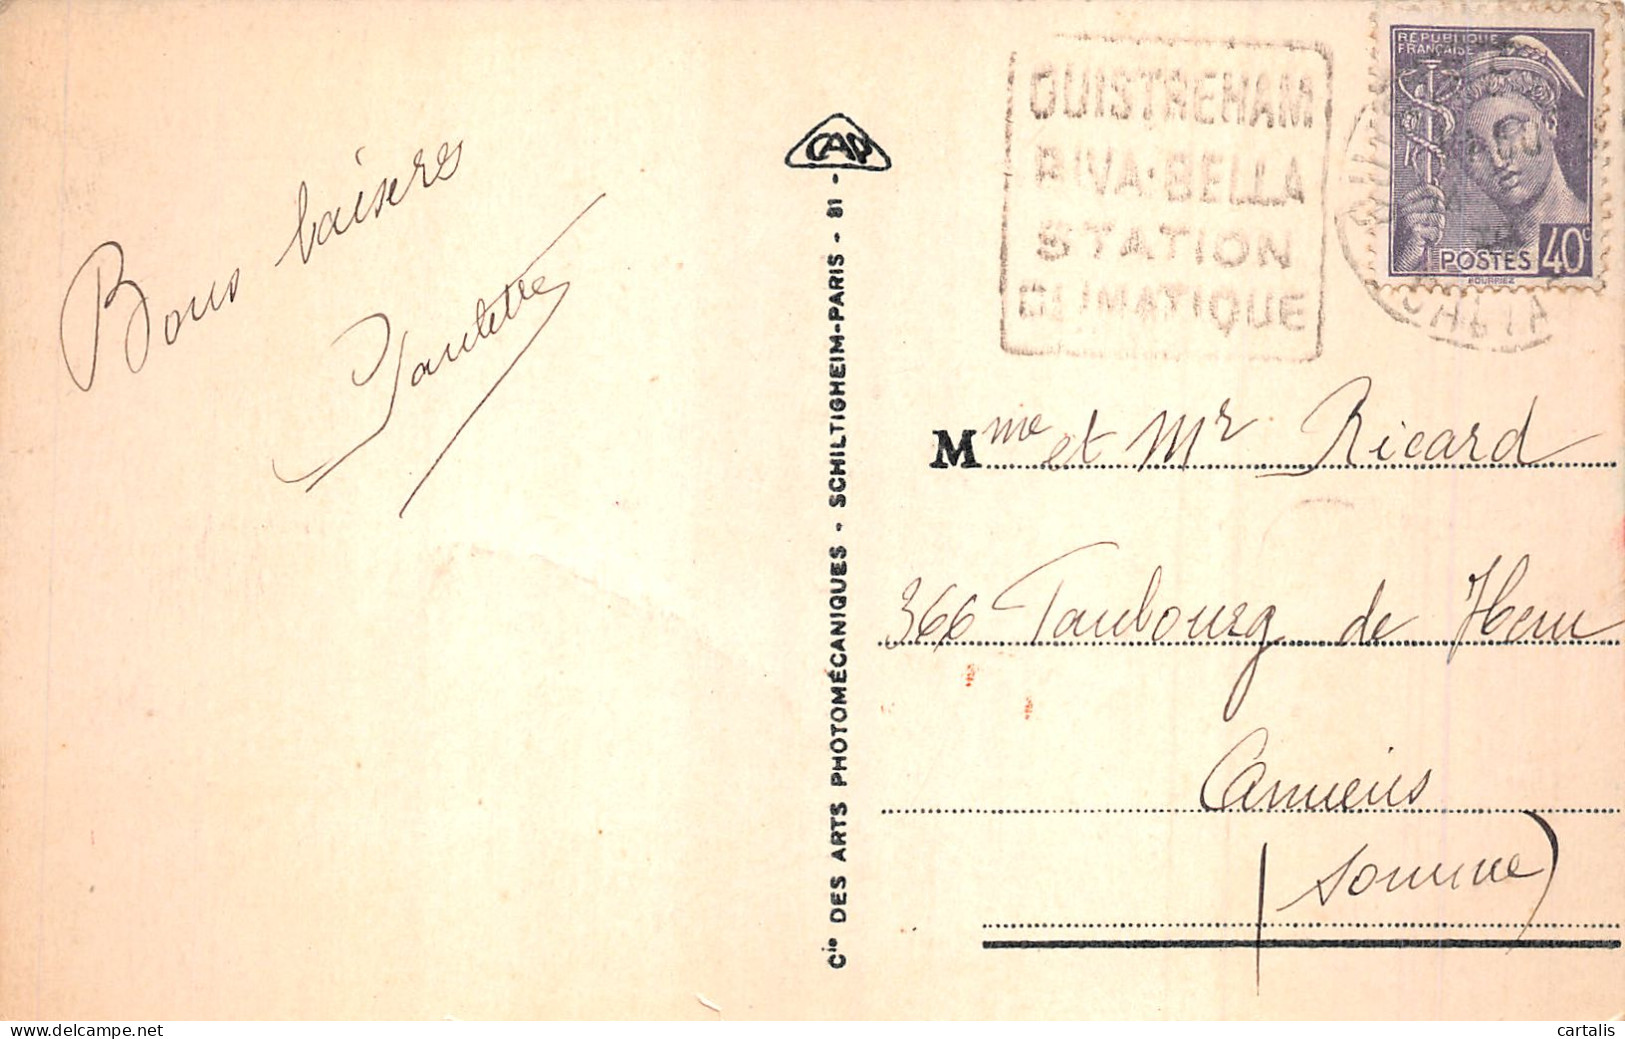 Bons baisers
Paulette
CAP
Cie DES ARTS PHOTOMÉCANIQUES - SCHILTIGHEIM-PARIS - 81 -
OUISTREHAM
RIVA-BELLA
STATION
CLIMATIQUE
RÉPUBLIQUE
FRANÇAISE
POSTES 40c
HOURRIEZ
Mme et Mr Ricard
366 Faubourg de Hem
Amiens
(Somme)
cartalis